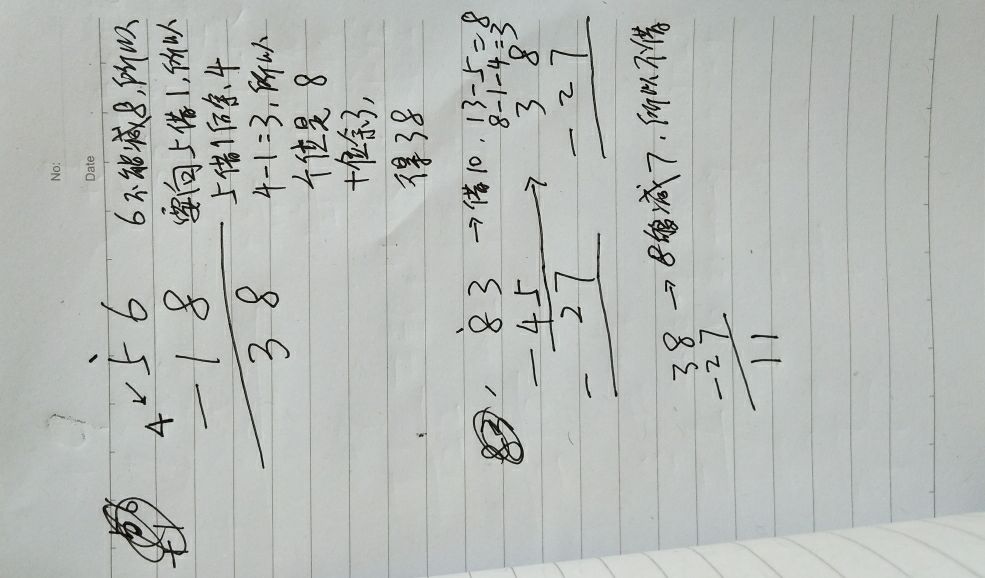 No:
Date
5 6
4
- 1 8
3 8
6不能减8,所以
要向上借1,所以
上借1后余4
4-1=3,所以
个位是 8
十位余3,
得38
83
8 3 →借10. 13-5=8
8-1-4=3
- 4 5 → 3 8
- 2 7
- 2 7
3 8 → 8够减7,所以不借
- 2 7
1 1